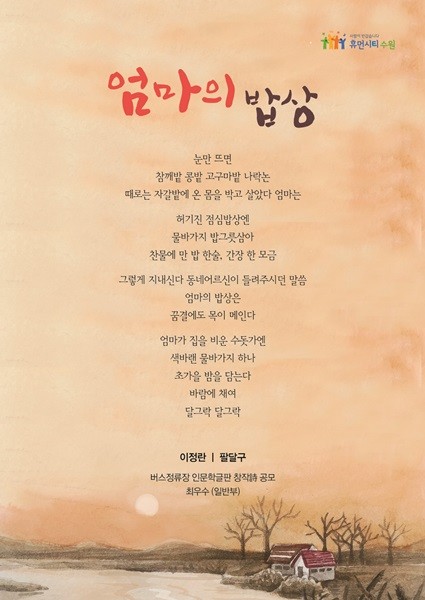 사람이 반갑습니다
휴먼시티 수원
엄마의 밥상
눈만 뜨면
참깨밭 콩밭 고구마밭 나락논
때로는 자갈밭에 온 몸을 박고 살았다 엄마는
허기진 점심밥상엔
물바가지 밥그릇삼아
찬물에 만 밥 한술, 간장 한 모금
그렇게 지내신다 동네어르신이 들려주시던 말씀
엄마의 밥상은
꿈결에도 목이 메인다
엄마가 집을 비운 수돗가엔
색바랜 물바가지 하나
초가을 밤을 담는다
바람에 채여
달그락 달그락
이정란 | 팔달구
버스정류장 인문학글판 창작詩 공모
최우수 (일반부)